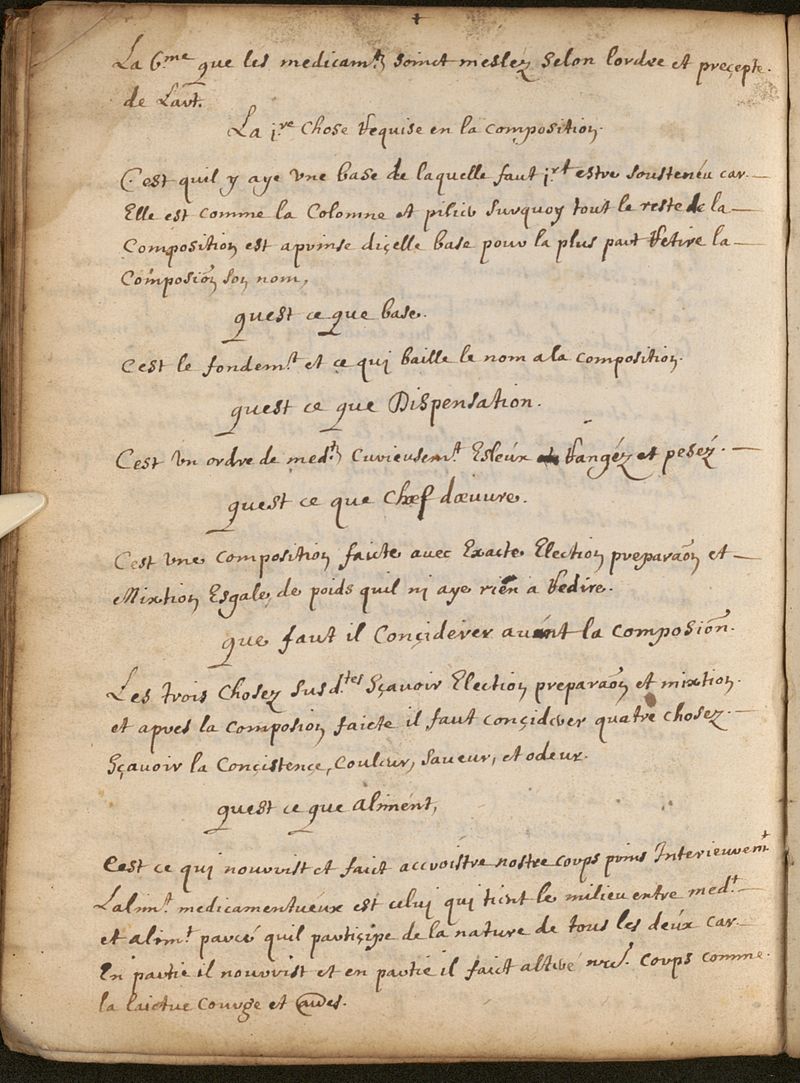 La 6.me que les medicam.ts soinct meslez selon lordre et precepte.
de Lart.
La j.re Chose Requise en la composition.
C'est quil y aye Vne base de laquelle faut j.rt estre soustenëu car.
Elle est comme la Colomne et pilier Surquoy tout le reste de la
Composition est aprinse diçelle base pour la plus part Retire la
Composiõn son nom,
quest ce que base.
C'est le fondem.t et ce qui baille le nom a la composition.
quest ce que Dispensation.
C'est Vn ordre de med.ts Curieusem.t Esleux Rangéz et pesez.
quest ce que Chef dœuure.
C'est Vne Composition faicte auec Exacte Election preparaõn et
Mixtion Esgale, de poids quil ni aye rien a Redire.
que faut il Conçiderer auant la composiõn.
Les trois Chosez Susd.tes Sçauoir Election preparaõn et mixtion.
et apres la Composion faicte il faut conçiderer quatre chosez.
Sçauoir la Conçistence, Couleur, Saueur, et odeur.
quest ce que aliment,
C'est ce qui nourrist et faict accroistre nostre corps prins Interieurem.t
Lalim.t medicamentueux est celui qui tient le milieu entre med.t
et alim.t parce quil partiçipe de la nature de tous les deux car.
En partie il nourrist et en partie il faict altere nre. Corps comme.
la laictue Courge et aures.